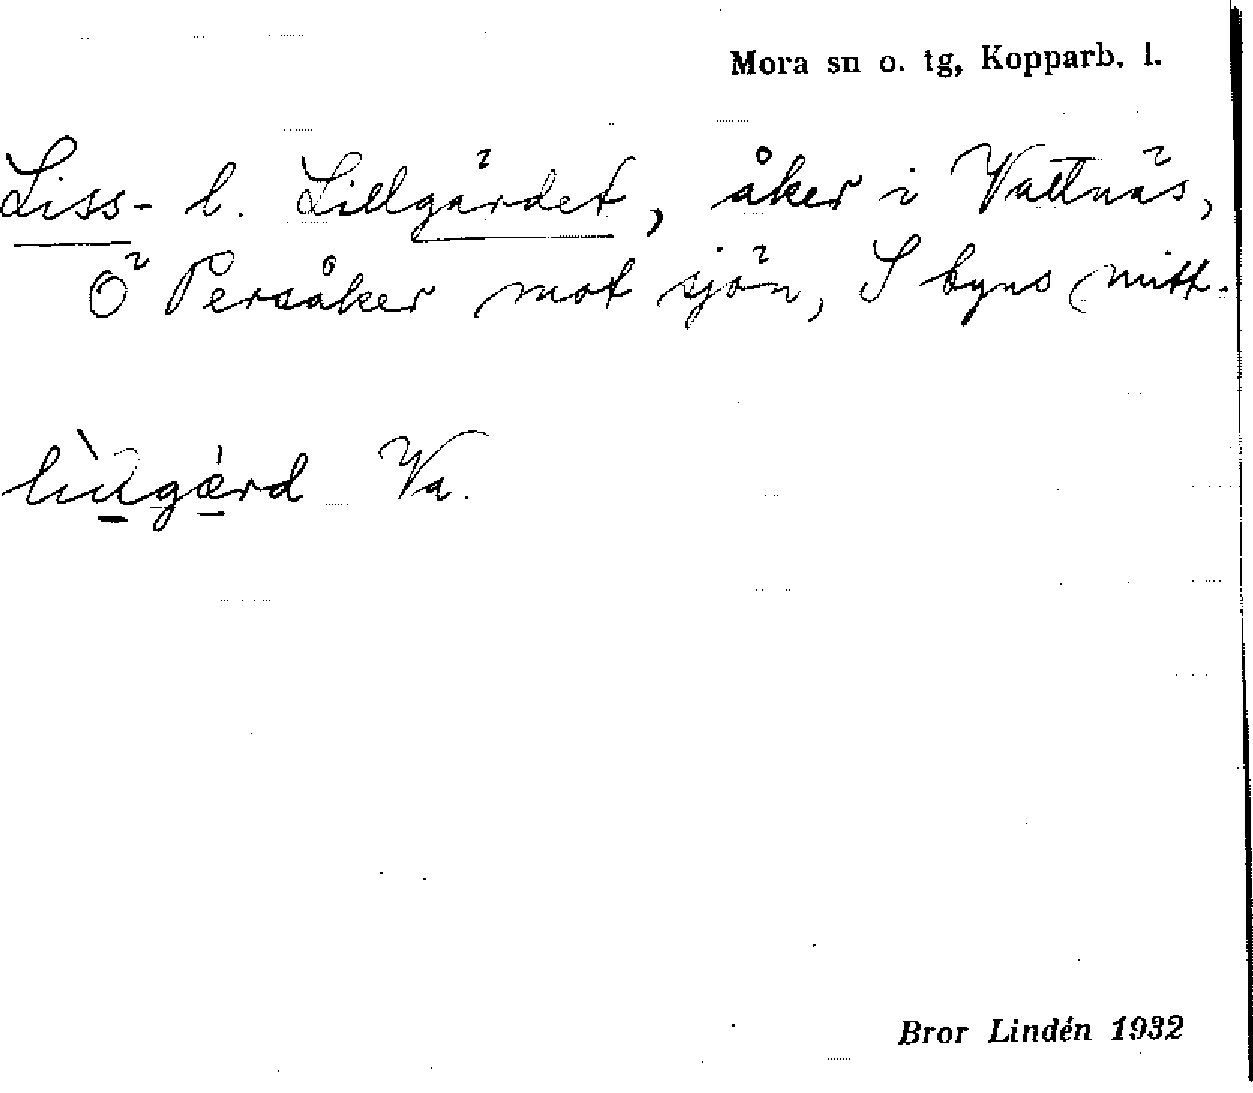 Mora sn o. tg, Kopparb. l.
Liss- l. Lillgärdet, åker i Vattnäs,
Ö Persåker mot sjön, S byns mitt.
Va.
Bror Lindén 1932